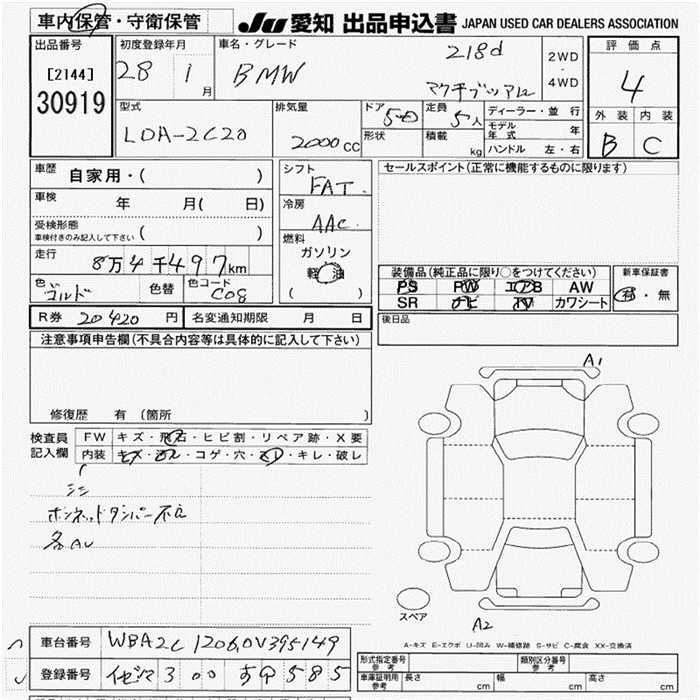 車内保管・守衛保管
JU 愛知 出品申込書 JAPAN USED CAR DEALERS ASSOCIATION
出品番号
[2144]
30919
初度登録年月
28 1 月
車名・グレード
BMW
218d
アクティブツアラー
2WD
・
4WD
評価点
4
外装 内装
B C
型式
LDA-2C20
排気量
2000cc
ドア 5
形状
定員 5人
積載 kg
ディーラー・並行
モデル年式 年
ハンドル 左・右
車歴 自家用・( )
車検 年 月( 日)
受検形態
車検付きのみ記入して下さい ( )
走行 8万4千497km
色 ゴルド 色替 色コード C08
シフト
FAT
冷房
AAC
燃料
ガソリン
軽油
( )
セールスポイント(正常に機能するものに限ります)
装備品(純正品に限り○をつけてください)
PS PW エアB AW
SR ナビ TV カワシート
新車保証書
有・無
R券 20420 円 名変通知期限 月 日
後日品
注意事項申告欄(不具合内容等は具体的に記入して下さい)
修復歴 有 (箇所 )
検査員
記入欄
FW キズ・飛石・ヒビ割・リペア跡・X要
内装 キズ・ヨゴレ・コゲ・穴・スレ・キレ・破レ
シミ
ボンネットダンパー不良
各AU
A1
スペア
A2
A-キズ E-エクボ U-凹み W-補修跡 S-サビ C-腐食 XX-交換済
車台番号 WBA2C 12060V395149
登録番号 300 585
形式指定番号
参考
類別区分番号
参考
車庫証明用
参考
長さ cm 幅 cm 高さ cm